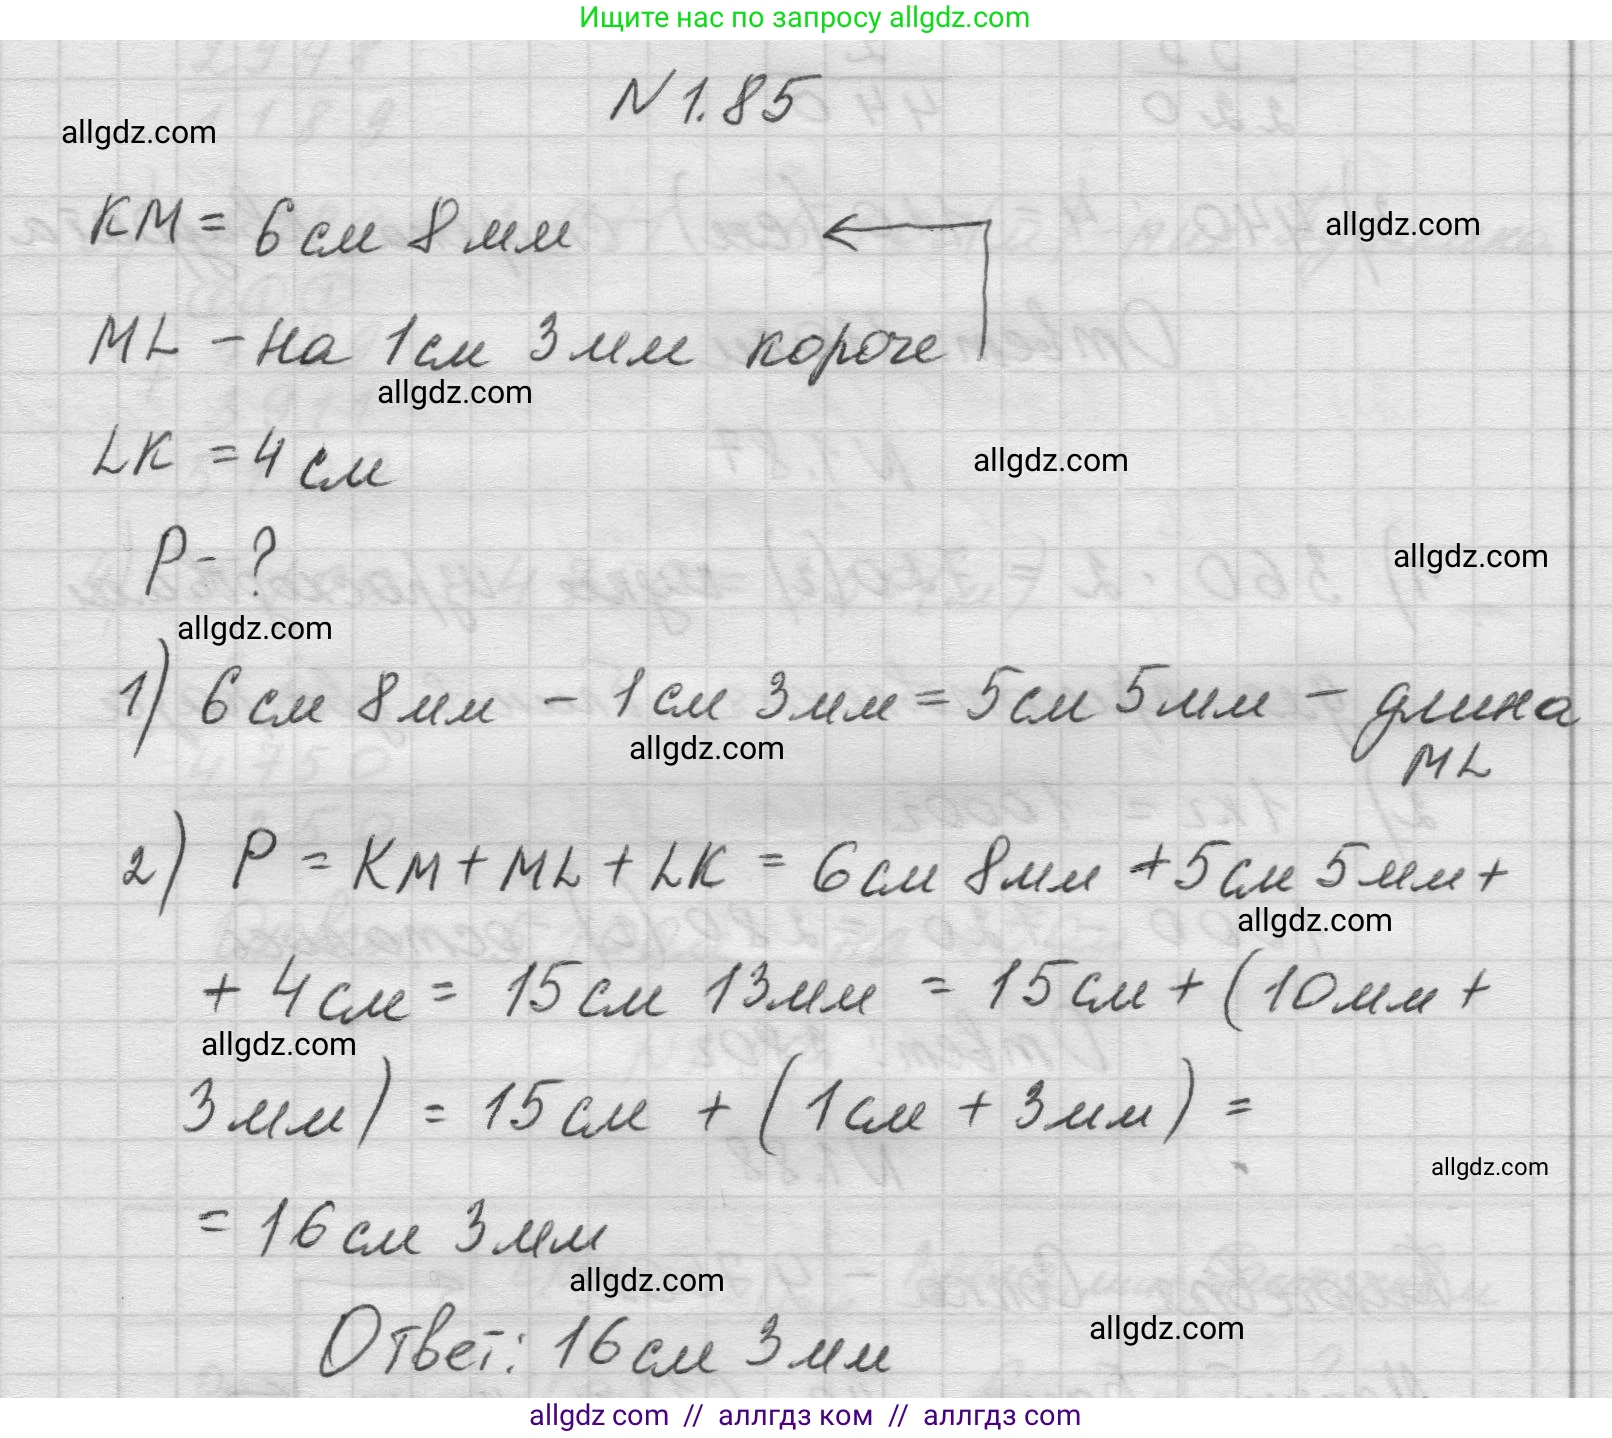 Ищите нас по запросу allgdz.com
N 1.85
allgdz.com
KM = 6 см 8 мм
allgdz.com
ML - на 1 см 3 мм короче
allgdz.com
LK = 4 см
allgdz.com
P - ?
allgdz.com
allgdz.com
1) 6 см 8 мм - 1 см 3 мм = 5 см 5 мм - длина
ML
allgdz.com
2) P = KM + ML + LK = 6 см 8 мм + 5 см 5 мм +
allgdz.com
+ 4 см = 15 см 13 мм = 15 см + (10 мм +
allgdz.com
3 мм) = 15 см + (1 см + 3 мм) =
allgdz.com
= 16 см 3 мм
allgdz.com
allgdz.com
Ответ: 16 см 3 мм
allgdz com // аллгдз ком // аллгдз com